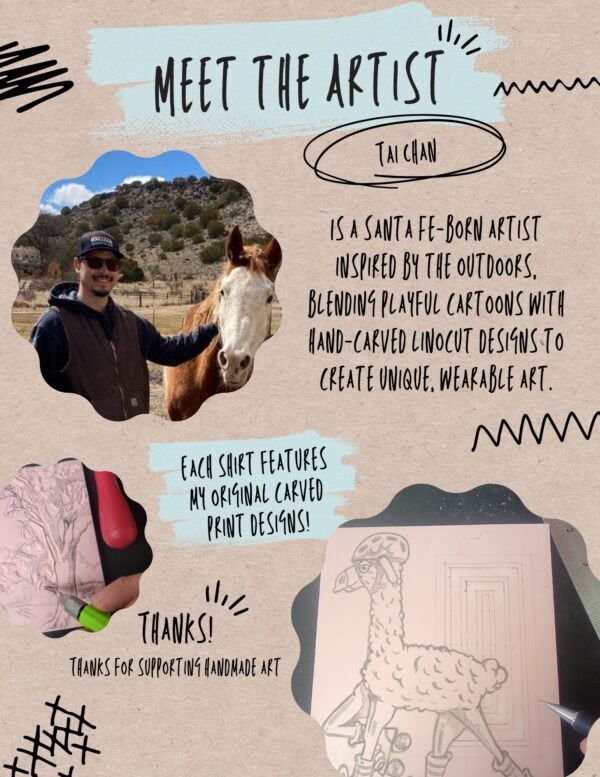 MEET THE ARTIST
TAI CHAN
IS A SANTA FE-BORN ARTIST
INSPIRED BY THE OUTDOORS,
BLENDING PLAYFUL CARTOONS WITH
HAND-CARVED LINOCUT DESIGNS TO
CREATE UNIQUE, WEARABLE ART.
EACH SHIRT FEATURES
MY ORIGINAL CARVED
PRINT DESIGNS!
THANKS!
THANKS FOR SUPPORTING HANDMADE ART